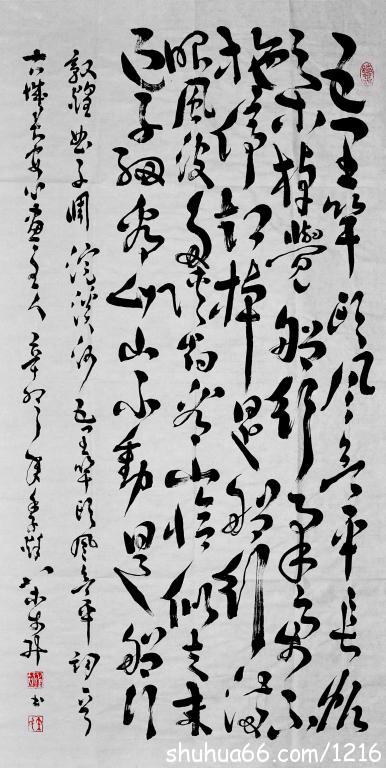 五里竿頭風欲平張帆
舉棹覺船行柔櫓不
施停却棹是船行滿
眼風波多陝汋看山恰似走來
迎子細看山山不動是船行
敦煌曲子詞浣溪沙五里竿頭風欲平詞一首
古城長安心畫室主人辛卯之夏書
shuhua66.com/1216